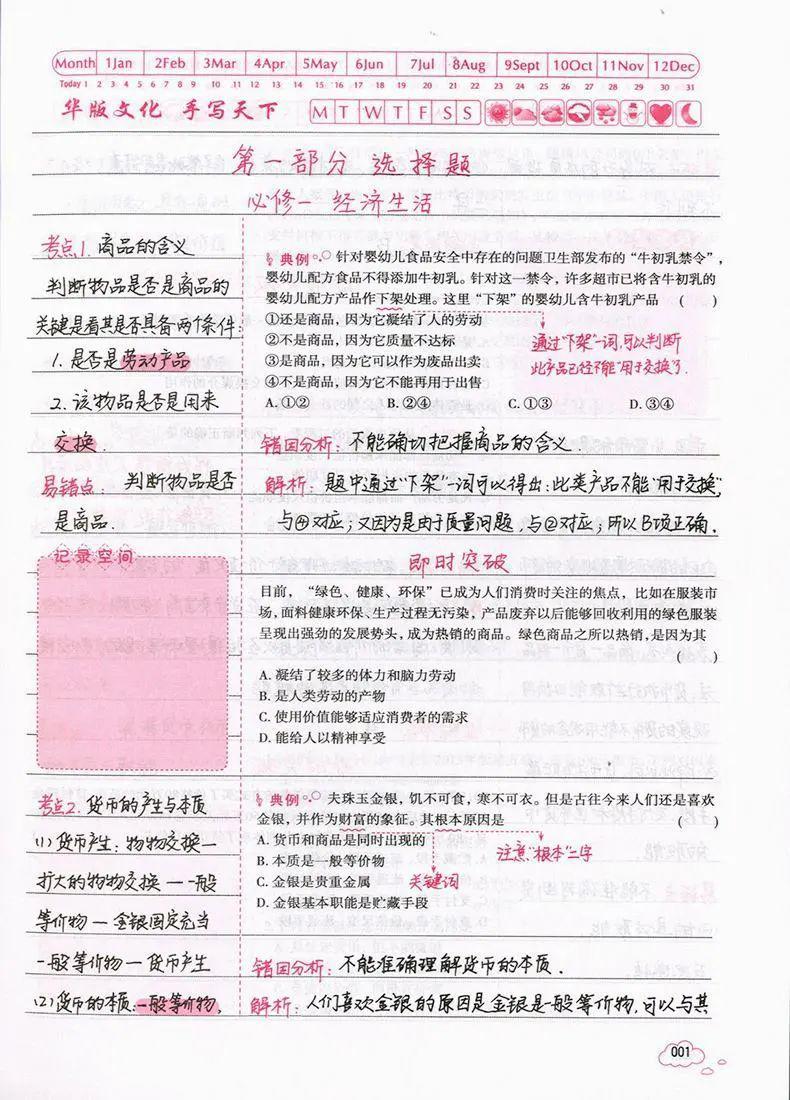 Month 1Jan 2Feb 3Mar 4Apr 5May 6Jun 7Jul 8Aug 9Sept 10Oct 11Nov 12Dec
Today 1 2 3 4 5 6 7 8 9 10 11 12 13 14 15 16 17 18 19 20 21 22 23 24 25 26 27 28 29 30 31
华版文化 手写天下 M T W T F S S
第一部分 选择题
必修一 经济生活
考点1. 商品的含义
判断物品是否是商品的
关键是看其是否具备两个条件
1. 是否是劳动产品
2. 该物品是否是用来
交换.
易错点: 判断物品是否
是商品.
记录空间
典例 针对婴幼儿食品安全中存在的问题卫生部发布的“牛初乳禁令”,
婴幼儿配方食品不得添加牛初乳。针对这一禁令,许多超市已将含牛初乳的
婴幼儿配方产品作下架处理。这里“下架”的婴幼儿含牛初乳产品 ( )
①还是商品,因为它凝结了人的劳动
②不是商品,因为它质量不达标
③是商品,因为它可以作为废品出卖
④不是商品,因为它不能再用于出售
A.①② B.②④ C.①③ D.③④
通过“下架”一词,可以判断
此产品已经不能“用于交换”了.
错因分析: 不能确切把握商品的含义.
解析: 题中通过“下架”一词可以得出:此类产品不能“用于交换”,
与④对应;又因为是由于质量问题,与②对应;所以B项正确.
即时突破
目前,“绿色、健康、环保”已成为人们消费时关注的焦点,比如在服装市
场,面料健康环保、生产过程无污染,产品废弃以后能够回收利用的绿色服装
呈现出强劲的发展势头,成为热销的商品。绿色商品之所以热销,是因为其
( )
A. 凝结了较多的体力和脑力劳动
B. 是人类劳动的产物
C. 使用价值能够适应消费者的需求
D. 能给人以精神享受
考点2. 货币的产生与本质
(1) 货币产生: 物物交换—
扩大的物物交换——般
等价物—金银固定充当
一般等价物—货币产生
(2) 货币的本质:一般等价物.
典例 夫珠玉金银,饥不可食,寒不可衣。但是古往今来人们还是喜欢
金银,并作为财富的象征。其根本原因是 ( )
A. 货币和商品是同时出现的
B. 本质是一般等价物
C. 金银是贵重金属
D. 金银基本职能是贮藏手段
关键词
注意“根本”二字
错因分析: 不能准确理解货币的本质.
解析: 人们喜欢金银的原因是金银是一般等价物,可以与其
001